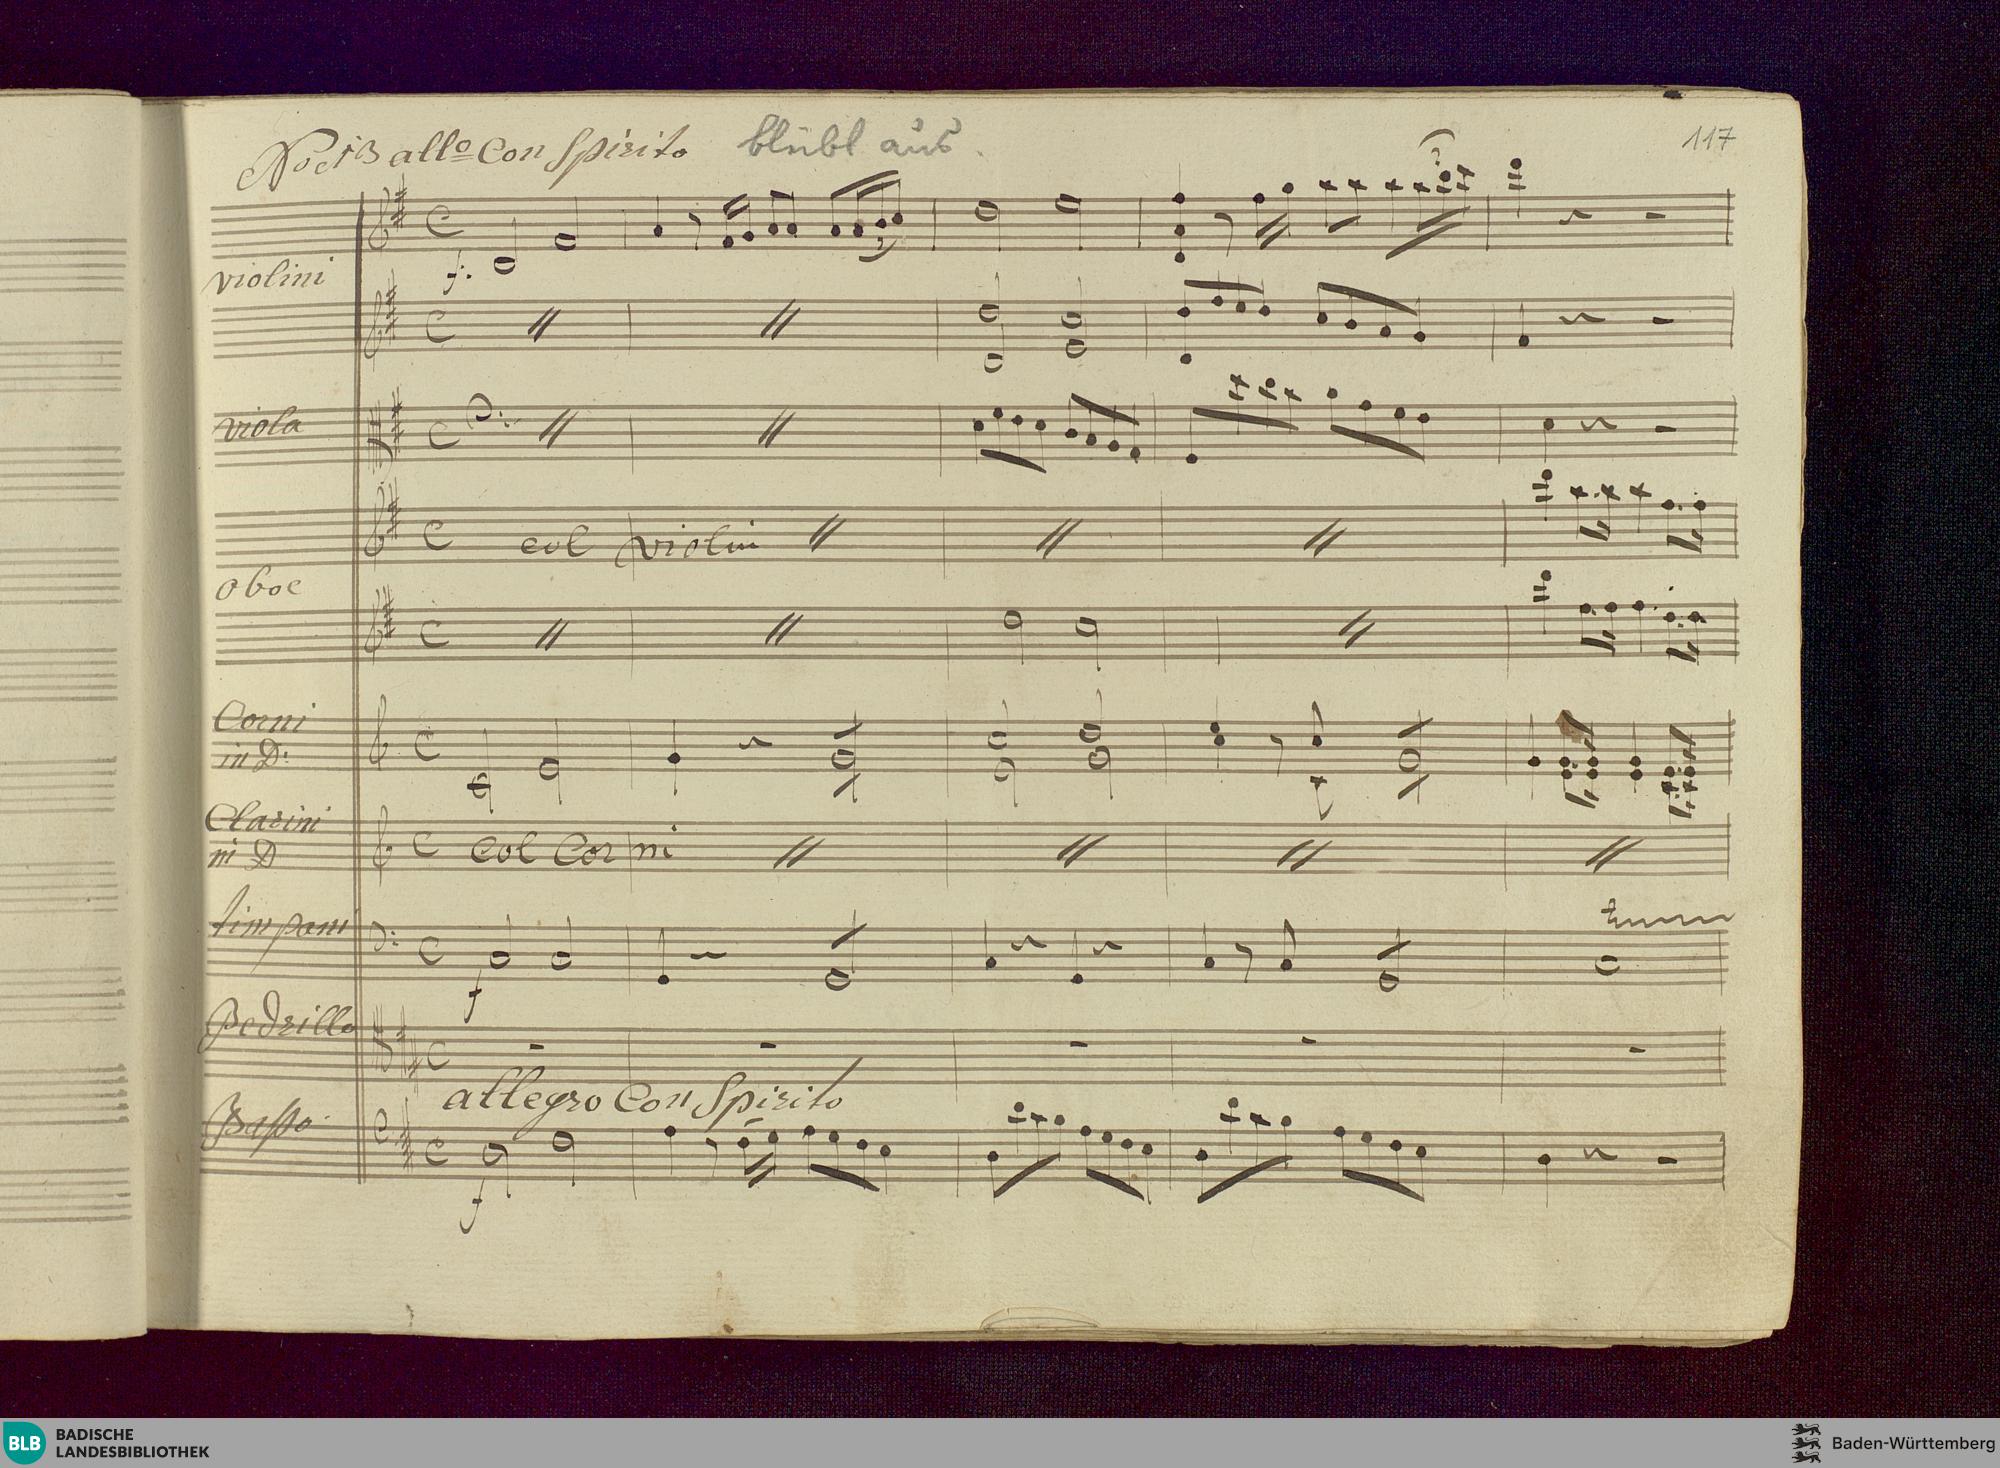 No 13 allo Con Spirito bleibt aus.
117
violini
f:
viola
col violin
oboe
Corni
in D:
Clarini
in D
Col Corni
timpani
f
Pedrillo
allegro Con Spirito
Basso.
f
BLB
BADISCHE
LANDESBIBLIOTHEK
Baden-Württemberg